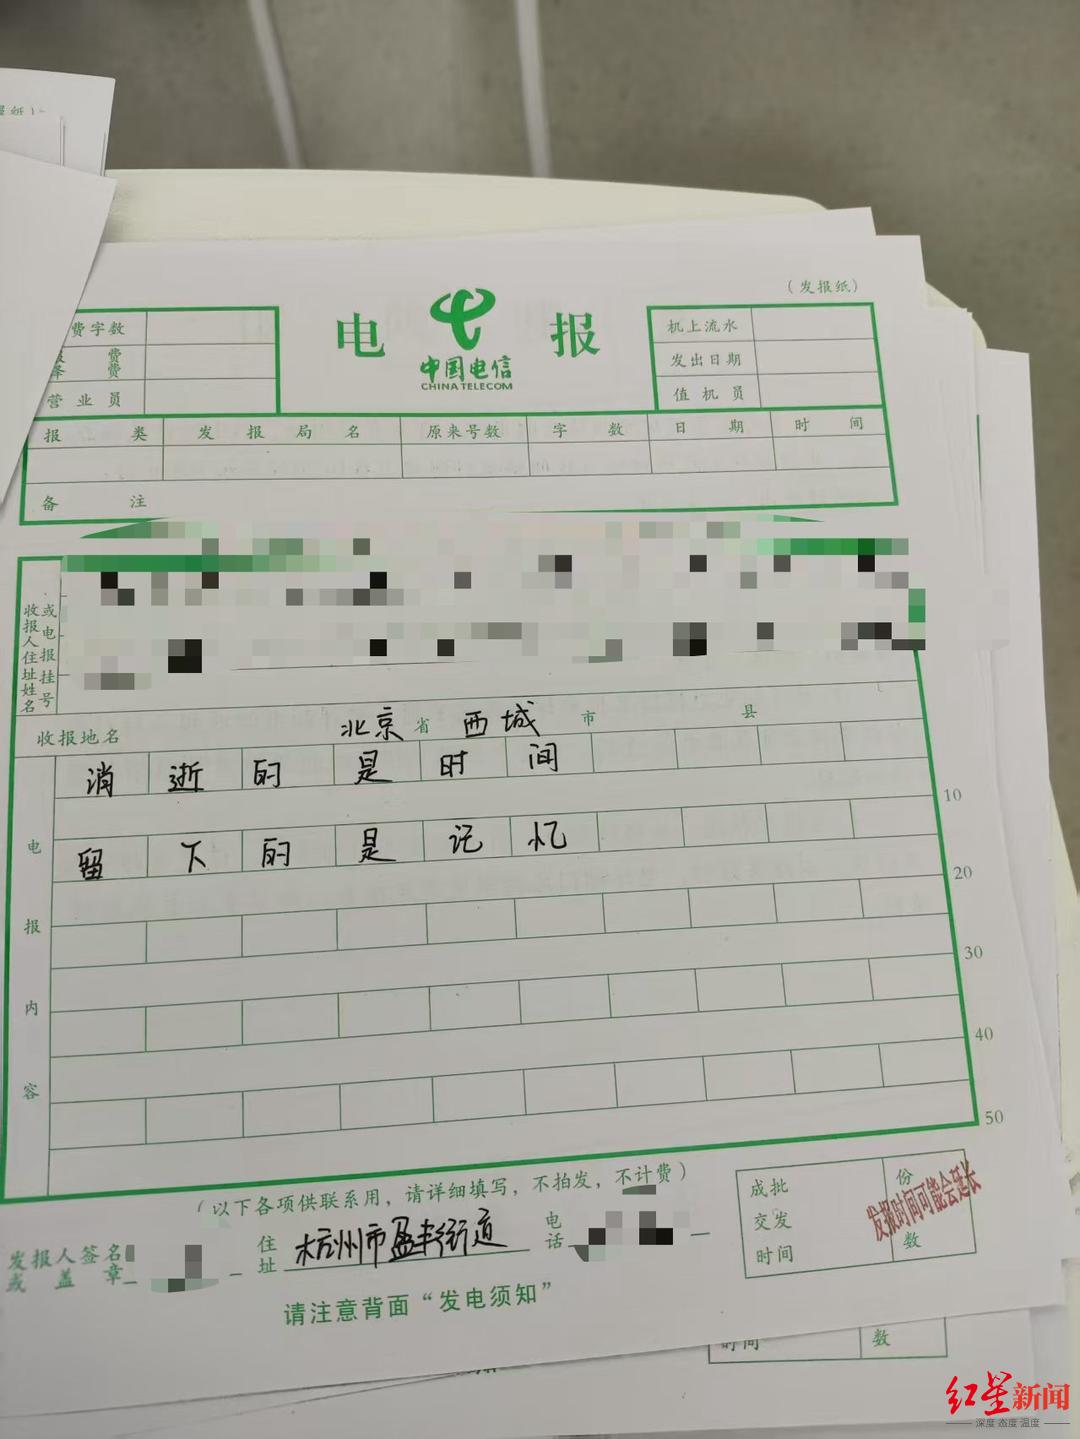 报纸）
（发报纸）
费字数
费
费
营业员
电
报
中国电信
CHINA TELECOM
机上流水
发出日期
值机员
报类
发报局名
原来号数
字数
日期
时间
备注
收报人住址姓名
或电报挂号
收报地名
北京省西城市县
电报内容
消逝的是时间
10
留下的是记忆
20
30
40
50
（以下各项供联系用，请详细填写，不拍发，不计费）
发报人签名
或盖章
住址
杭州市盈丰街道
电话
成批
交发
时间
份
数
发报时间可能会延长
请注意背面“发电须知”
时间
数
红星新闻
深度 态度 温度